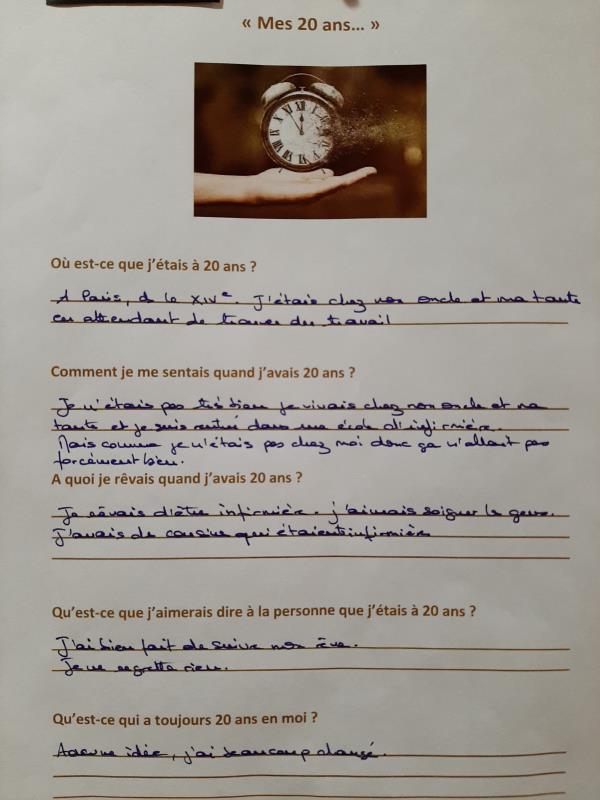 « Mes 20 ans... »
Où est-ce que j'étais à 20 ans ?
A Paris, d le XIVe. J'étais chez mon oncle et ma tante
en attendant de trouver du travail
Comment je me sentais quand j'avais 20 ans ?
Je n'étais pas très bien je vivais chez mon oncle et ma
tante et je suis rentré dans une école d'infirmière.
Mais comme je n'étais pas chez moi donc ça n'allait pas
forcément bien.
A quoi je rêvais quand j'avais 20 ans ?
Je rêvais d'être infirmière. j'aimais soigner le gens.
J'avais de cousine qui étaient infirmière
Qu'est-ce que j'aimerais dire à la personne que j'étais à 20 ans ?
J'ai bien fait de suivre mon rêve.
Je ne regrette rien.
Qu'est-ce qui a toujours 20 ans en moi ?
Aucune idée, j'ai beaucoup changé.